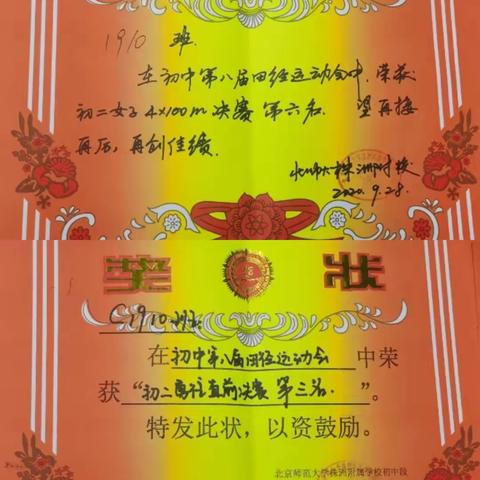 1910 班.
在初中第八届田经运动会中,荣获
初二女子4×100m决赛 第六名. 望再接
再厉,再创佳绩.
北师大株洲附校
2020.9.28.
奖 状
C1910班
在初中第八届田径运动会中荣
获“初二男往直前决赛 第三名.”。
特发此状,以资鼓励。
北京师范大学株洲附属学校初中段